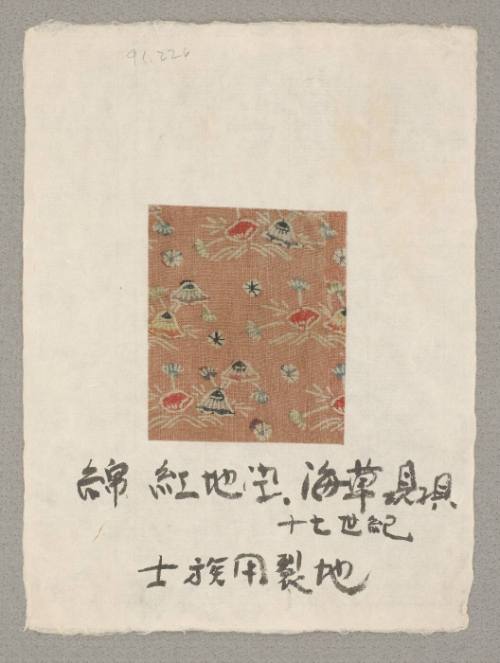 91.226
綿 紅地型、海草
十七世紀
士族用裂地